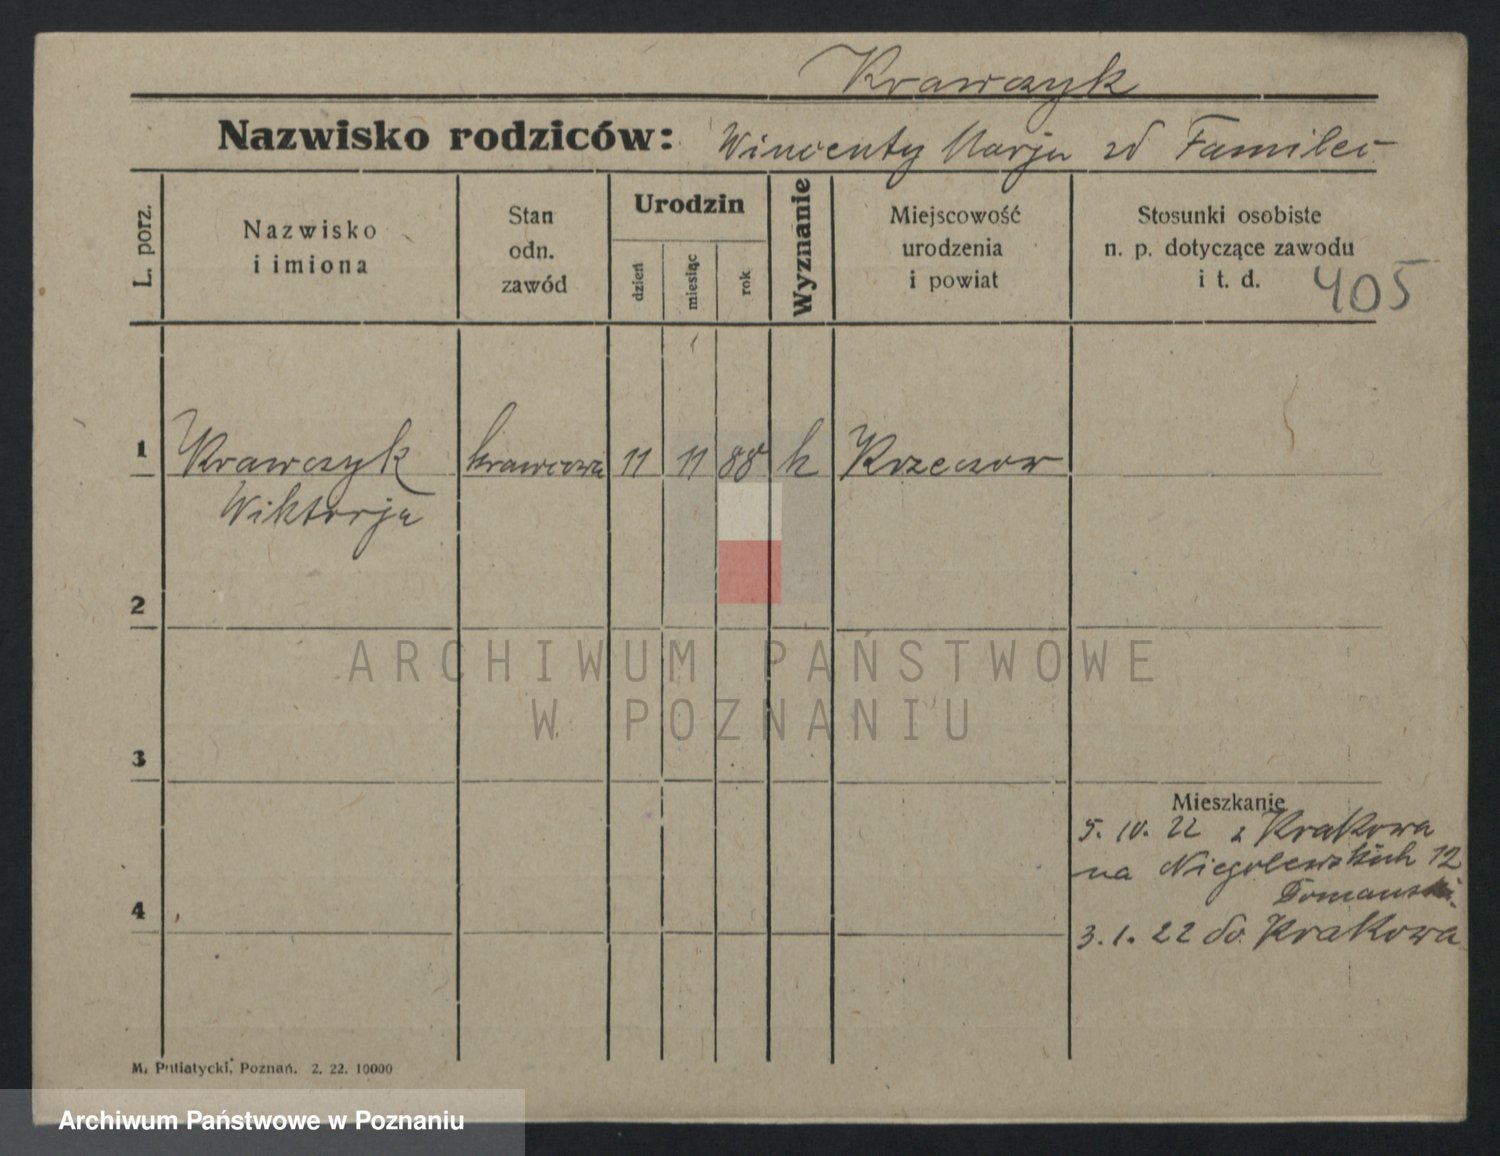 Krawczyk
Nazwisko rodziców: Wincenty Marja zd Familec
L. porz.
Nazwisko
i imiona
Stan
odn.
zawód
Urodzin
dzień
miesiąc
rok
Wyznanie
Miejscowość
urodzenia
i powiat
Stosunki osobiste
n. p. dotyczące zawodu
i t. d.
405
1 Krawczyk krawcowa 11 11 88 k
Wiktorja
2
ARCHIWUM PAŃSTWOWE
W POZNANIU
3
Mieszkanie
5. 10. 22 z Krakowa
na Niegolewskich 12
4
3. 1. 22 do Krakowa
M. Putiatycki, Poznań. 2. 22. 10000
Archiwum Państwowe w Poznaniu